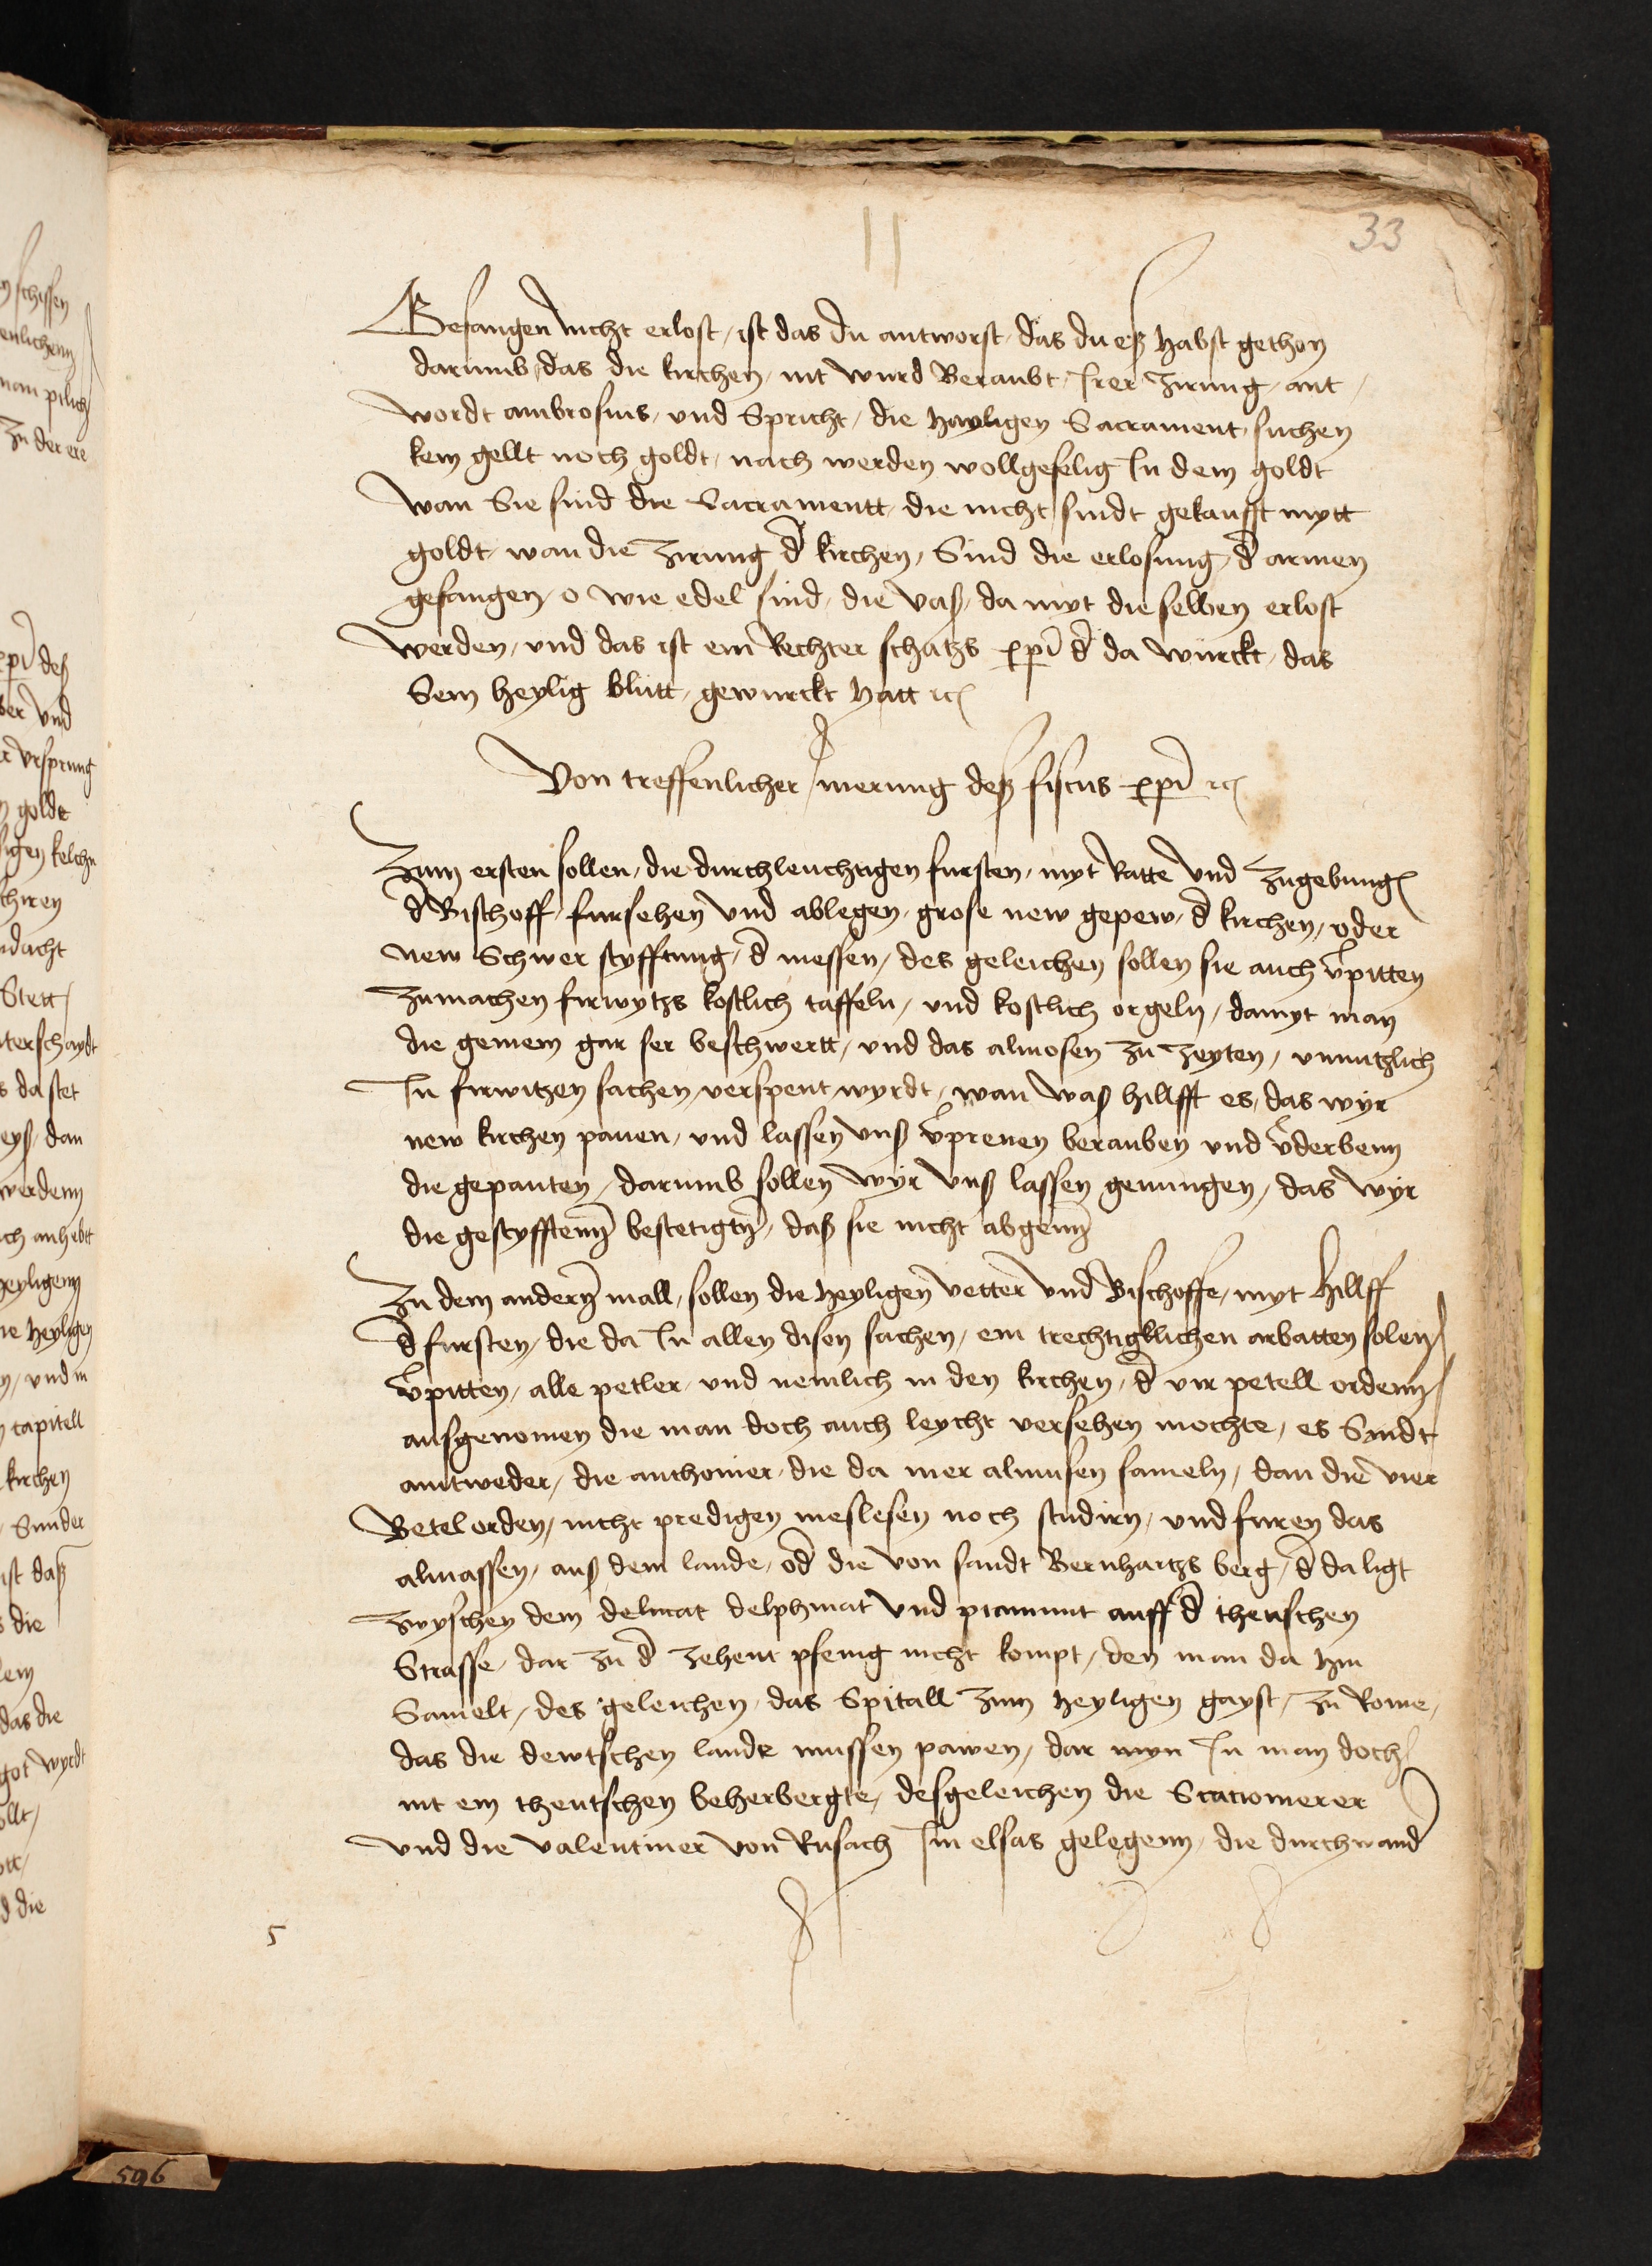 33
Gefangen nicht erlost / ist das du antworst / das du eß habst gethon
darumb / das die kirchen / nit wurd Beraubt / Irer zirung / ant /
wordt ambrosius / und Spricht / die hayligen Sacrament / suchen
kein gellt noch goldt / nach werden wollgefelig In dem goldt
wan Sie sind die Sacramentt / die nicht sindt gekaufft mytt
goldt / wan die zirung d̄ kirchen / Sind die erlosung / d̄ armen
gefangen / o wie edel sind / die vaß / da myt die selben erlost
werden / und das ist ein Rechter schatzs xp̄i d̄ da würckt / das
Sein heylig blutt / gewurckt hatt ꝛc
Von treffenlicher merung deß fiscus xp̄i ꝛc
Zum ersten sollen / die durchleuchtigen fursten / myt Ratte und zugebung
d̄ Bischoff / fursehen und ablegen / grose new gepew / d̄ kirchen / oder
new Schwer styfftung / d̄ messen / des geleichen sollen sie auch v̄pitten
zumachen firwytzs kostlich taffeln / und kostlich orgeln / damyt man
die gemein gar ser beschwertt / und das almosen zu zeyten / unnutzlich
In firwitzen sachen / verspent wyrdt / wan waß hillfft es / das wyr
new kirchen pauen / und lassen unß v̄prenen berauben und v̄derbenn
die gepauten / darumb sollen wyr unß lassen genungen / das wyr
die gestyfftenn bestetigtn̄ / daß sie nicht abgenn̄
Zu dem andern̄ mall / sollen die heyligen vetter und Bischoffe / myt hillff
d̄ fursten / die da In allen disen sachen / ein trechtigklichen arbatten solen /
v̄pitten / alle petler / und nemlich in den kirchen / d̄ vir petell ordenn /
außgenomen die man doch auch leycht versehen mochte / es Sindt
auntweder / die anthonier / die da mer almusen sameln / dan die vier
Betel orden / nicht predigen meslesen noch studirn / und furen das
almassen / auß dem lande / od̄ die von sandt Bernhartzs berg / d̄ da ligt
zwyschen dem delmat delphinat und piamunt auff d̄ theuschen
Strasse / dar zu d̄ zehent pfenig nicht kompt / den man da hin
Samelt / des geleichen / das Spitall zum heyligen gayst / zu Rome /
das die dewtschen lande mussen pawen / dar myn In man doch
nit ein theutschen beherbergte / desgeleichen die Stationierer
und die valentiner von Rufach Im elsas gelegenn / die durchwand̄
5
596